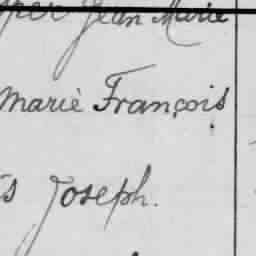 Jean Marie
Marie François
s Joseph.